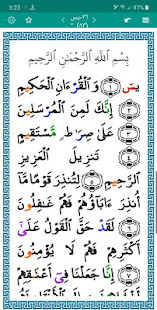 5:23
٣٦-يس
بِسْمِ ٱللَّهِ ٱلرَّحْمَٰنِ ٱلرَّحِيمِ
يسٓ ١ وَٱلْقُرْءَانِ ٱلْحَكِيمِ
٢ إِنَّكَ لَمِنَ ٱلْمُرْسَلِينَ
٣ عَلَىٰ صِرَٰطٍ مُّسْتَقِيمٍ
٤ تَنزِيلَ ٱلْعَزِيزِ
ٱلرَّحِيمِ ٥ لِتُنذِرَ قَوْمًا مَّآ
أُنذِرَ ءَابَآؤُهُمْ فَهُمْ غَٰفِلُونَ
٦ لَقَدْ حَقَّ ٱلْقَوْلُ عَلَىٰٓ
أَكْثَرِهِمْ فَهُمْ لَا يُؤْمِنُونَ
٧ إِنَّا جَعَلْنَا فِىٓ أَعْنَٰقِهِمْ